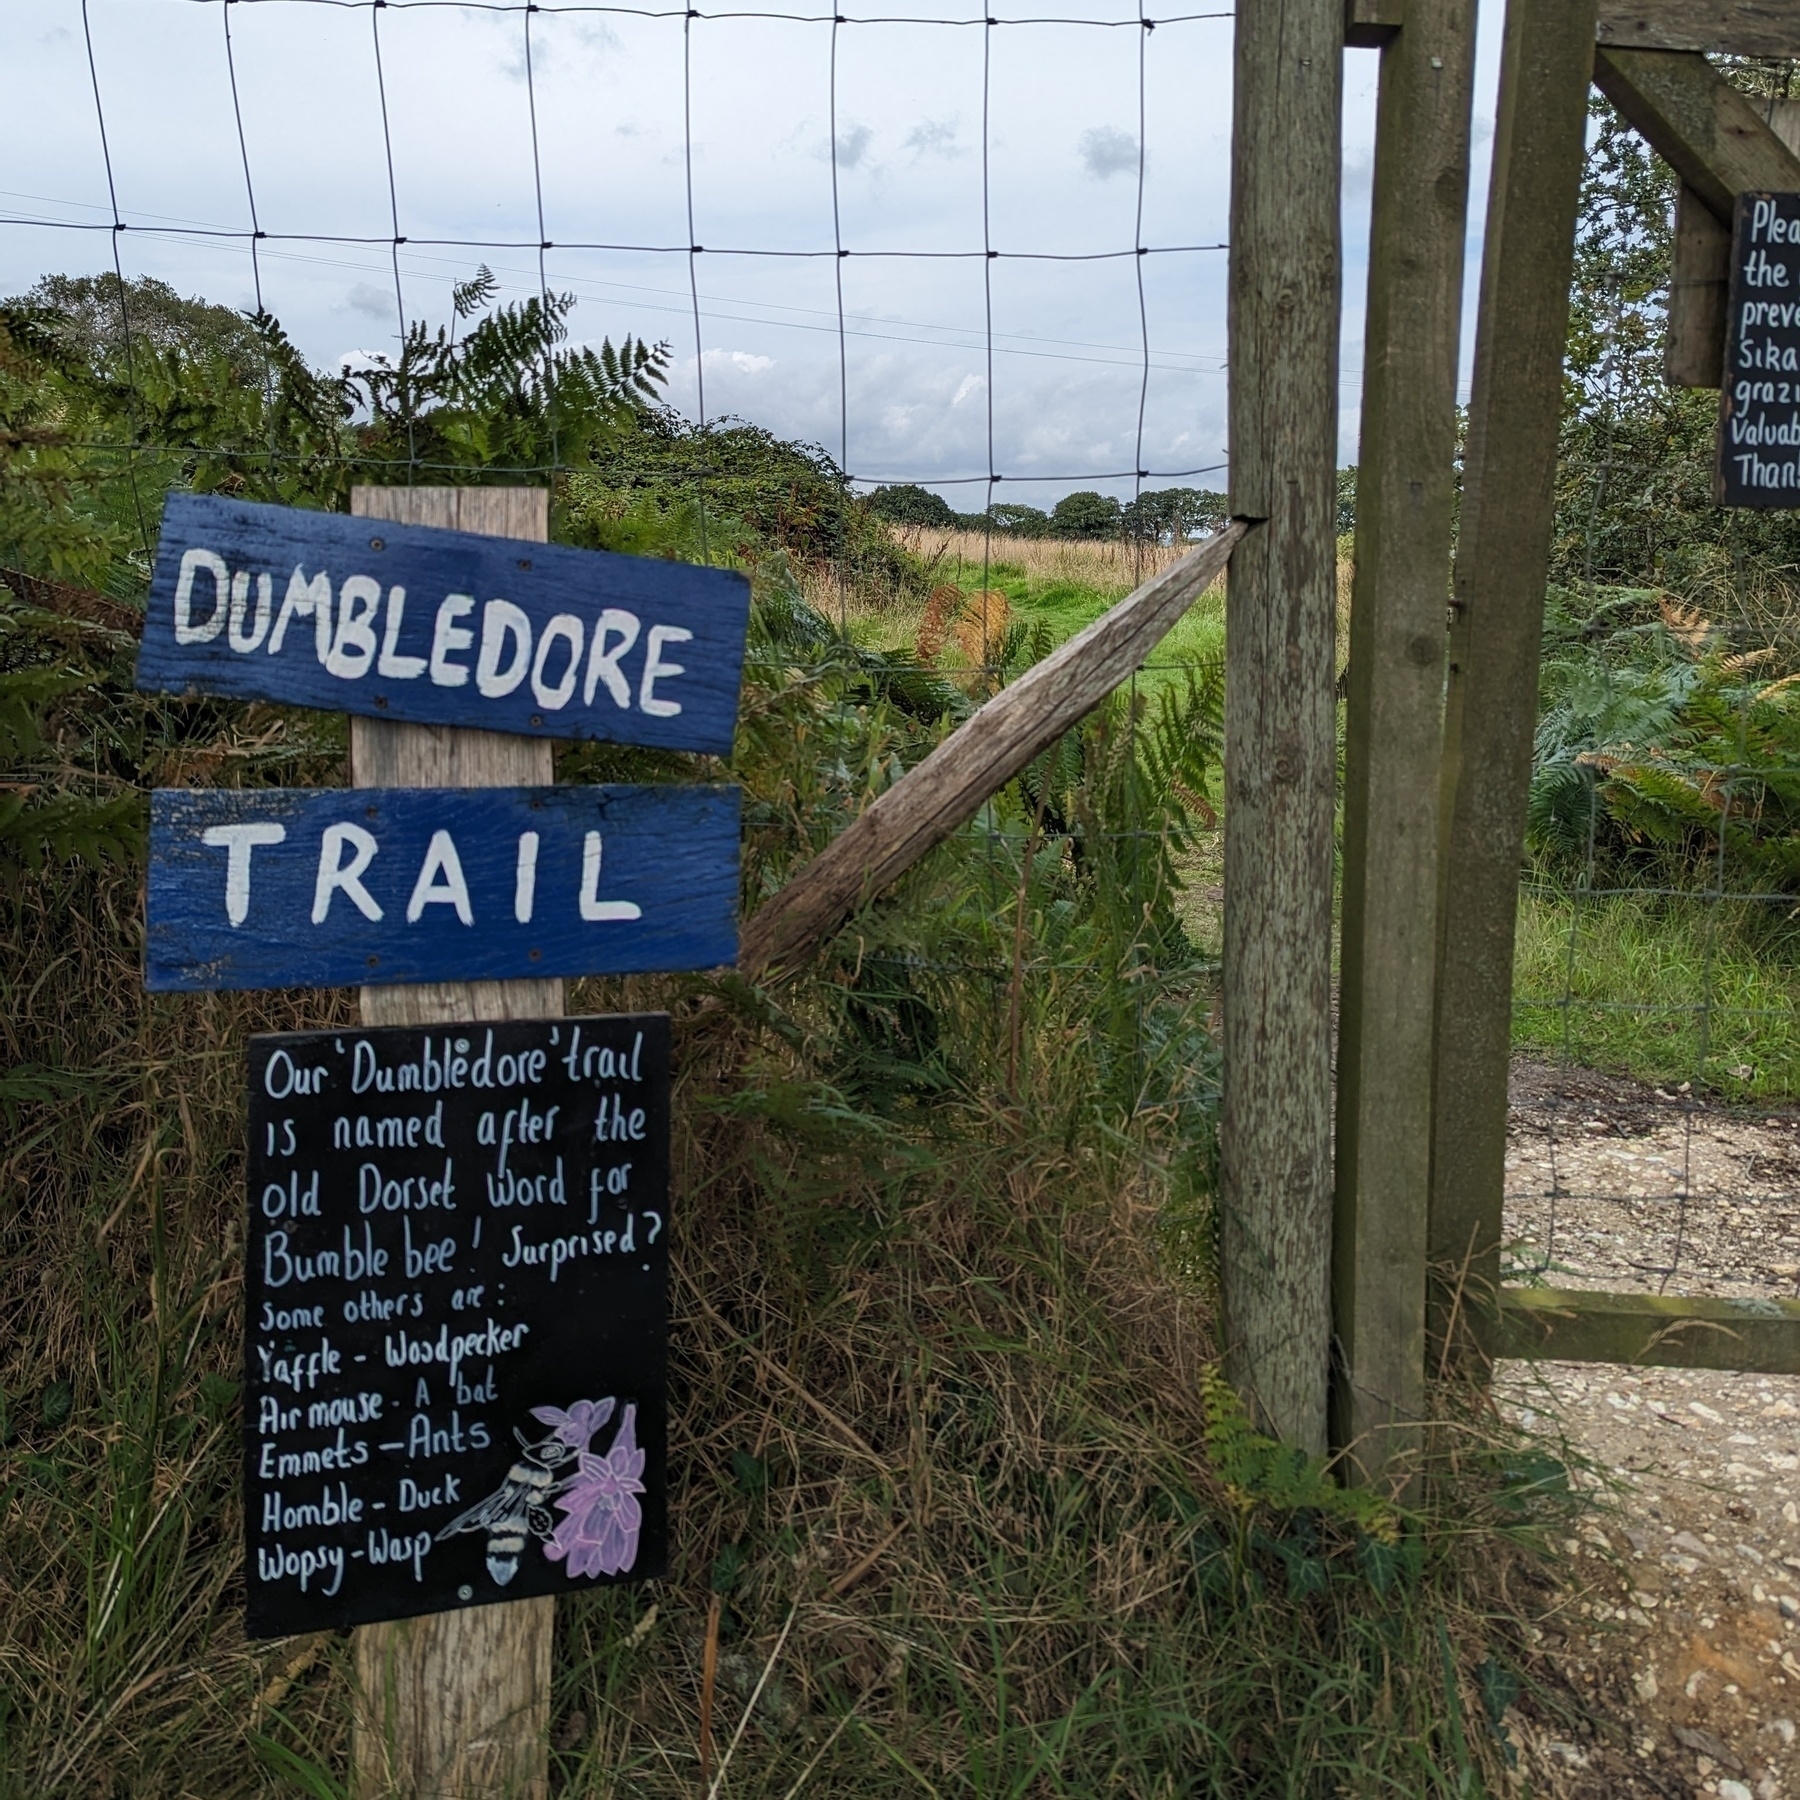 DUMBLEDORE
TRAIL
Our 'Dumbledore' trail
is named after the
old Dorset word for
Bumble bee! Surprised?
Some others are:
Yaffle - Woodpecker
Air mouse - A bat
Emmets - Ants
Homble - Duck
Wopsy - Wasp
the
Sika